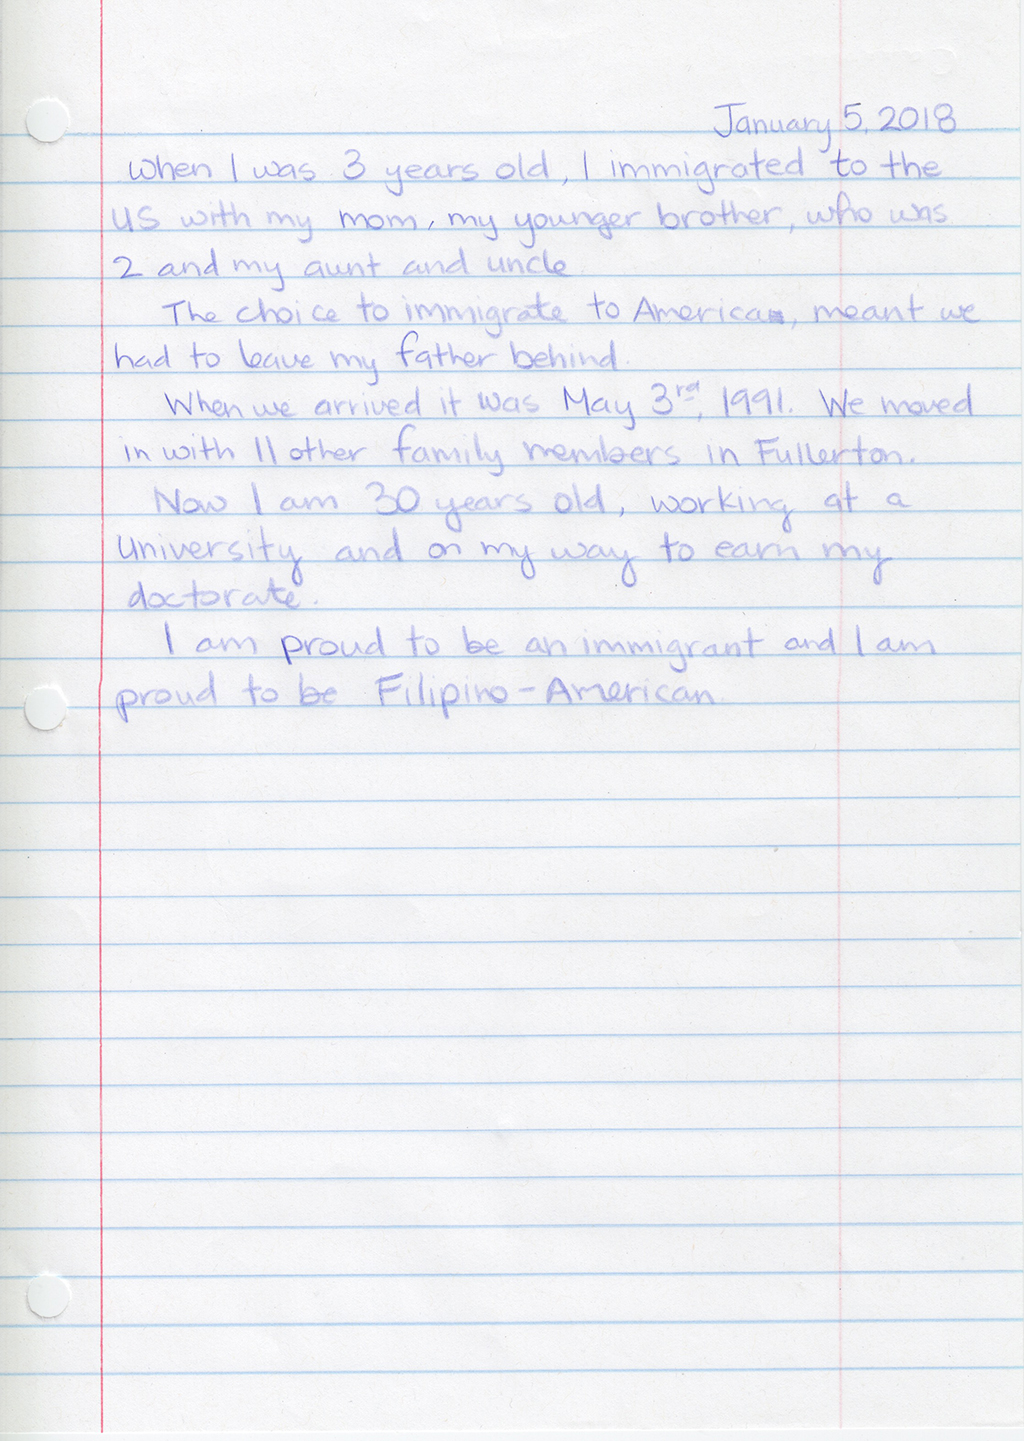 January 5, 2018
When I was 3 years old, I immigrated to the
US with my mom, my younger brother, who was
2 and my aunt and uncle
The choice to immigrate to America, meant we
had to leave my father behind.
When we arrived it was May 3rd, 1991. We moved
in with 11 other family members in Fullerton.
Now I am 30 years old, working at a
University and on my way to earn my
doctorate.
I am proud to be an immigrant and I am
proud to be Filipino-American